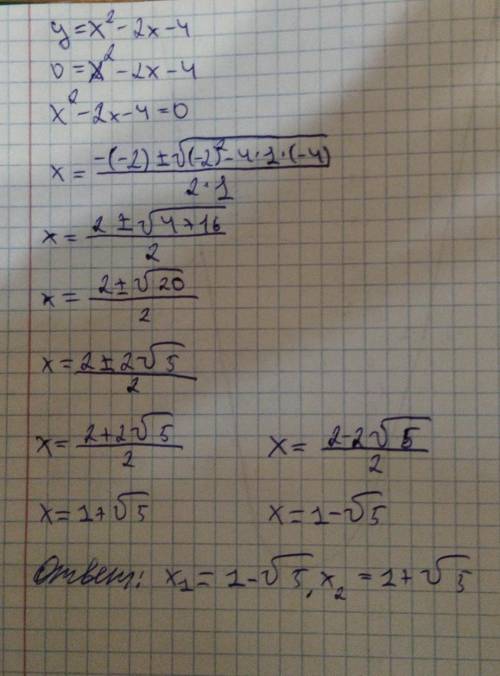 y=x²-2x-4
0=x²-2x-4
x²-2x-4=0
x= (-(-2)±√((-2)²-4·1·(-4)))/(2·1)
x= (2±√(4+16))/2
x= (2±√20)/2
x= (2±2√5)/2
x= (2+2√5)/2 x= (2-2√5)/2
x=1+√5 x=1-√5
Ответ: x₁=1-√5, x₂=1+√5